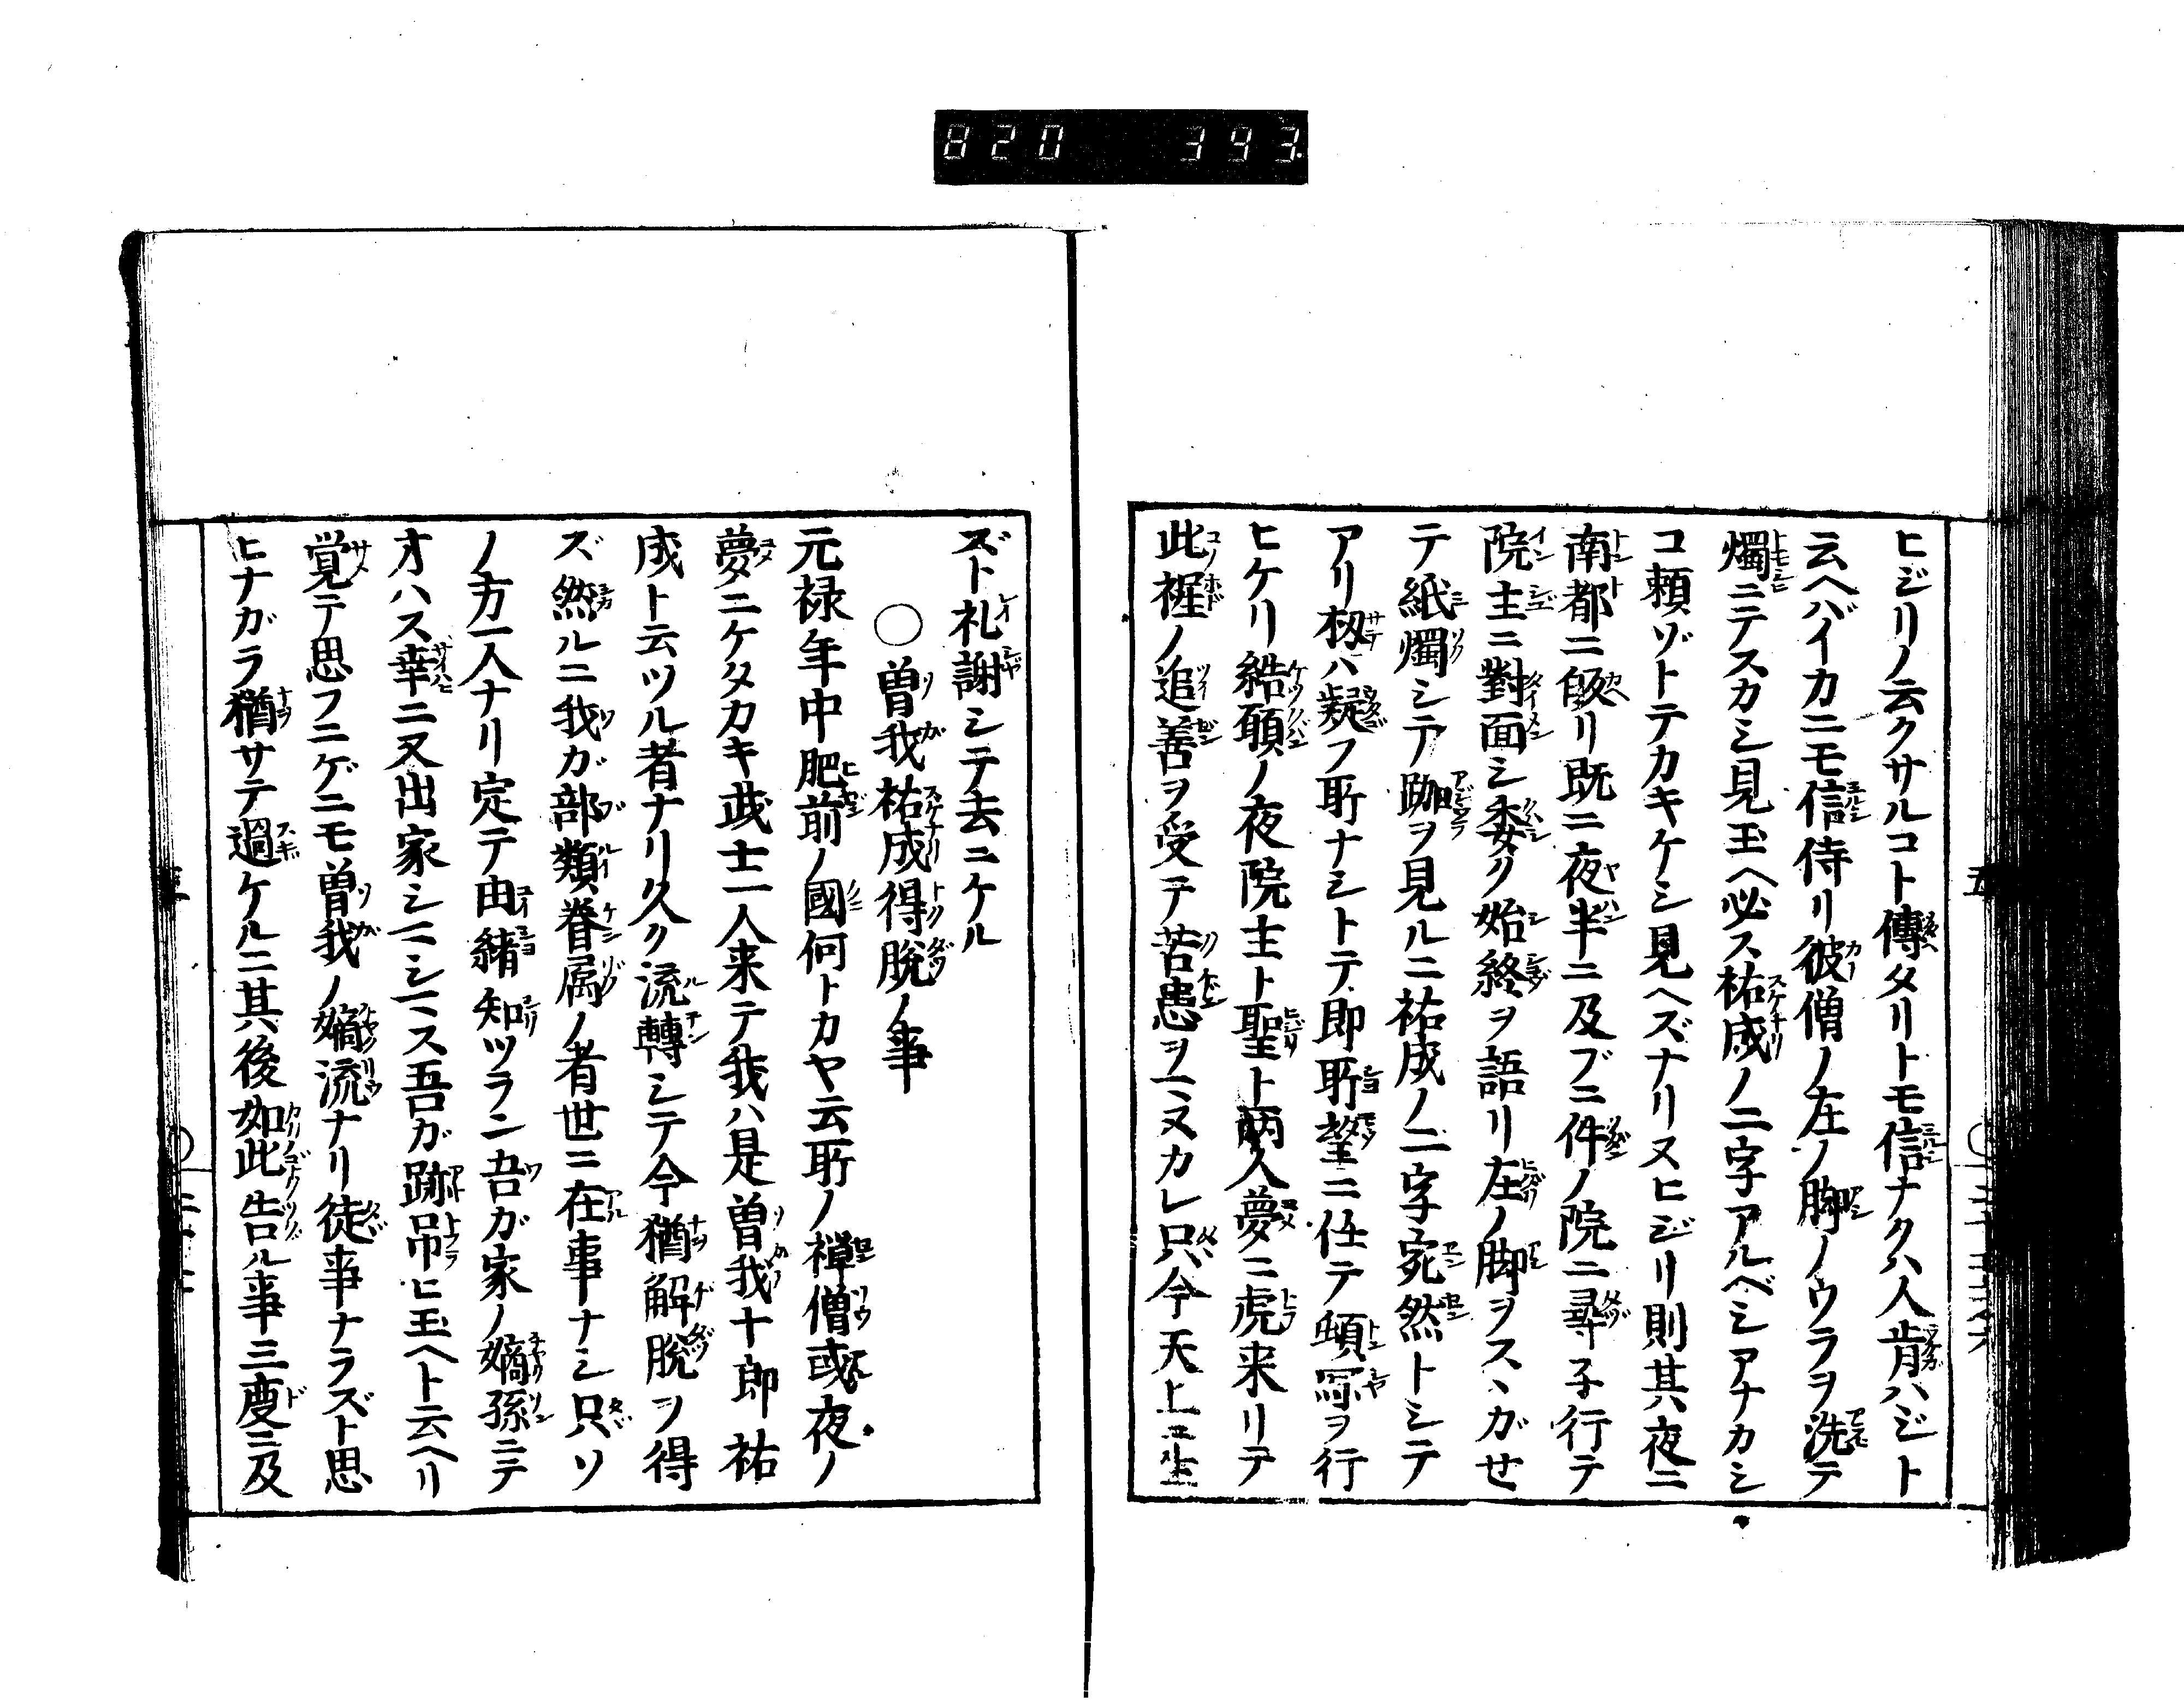 820 393
ヒジリノ云クサルコト傳タリトモ信ナクハ人肯ハジト
云ヘバイカニモ信侍リ彼僧ノ左ノ脚ノウラヲ洗テ
燭ニテスカシ見玉ヘ必ス祐成ノ二字アルベシアナカシ
コ頼ゾトテカキケシ見ヘズナリヌヒジリ則其夜ニ
南都ニ皈リ既ニ夜半ニ及ブニ件ノ院ニ尋子行テ
院主ニ對面シ委ク始終ヲ語リ左ノ脚ヲスヽガせ
テ紙燭シテ跏ヲ見ルニ祐成ノ二字宛然トシテ
アリ扨ハ疑フ所ナシトテ即所望ニ任テ頓冩ヲ行
ヒケリ結願ノ夜院主ト聖ト两人夢ニ虎来リテ
此程ノ追善ヲ受テ苦患ヲマヌカレ只今天上ニ生
ズト礼謝シテ去ニケル
○曽我祐成得脱ノ事
元禄年中肥前ノ國何トカヤ云所ノ禅僧或夜ノ
夢ニケタカキ武士一人来テ我ハ是曽我十郎祐
成ト云ツル者ナリ久ク流轉シテ今猶解脱ヲ得
ズ然ルニ我ガ部類眷属ノ者世ニ在事ナシ只ソ
ノ方一人ナリ定テ由緒知ツラン吾ガ家ノ嫡孫ニテ
オハス幸ニ又出家シマシマス吾ガ跡吊ヒ玉ヘト云ヘリ
覚テ思フニゲニモ曽我ノ嫡流ナリ徒事ナラズト思
ヒナガラ猶サテ過ケルニ其後如此告ル事三度ニ及